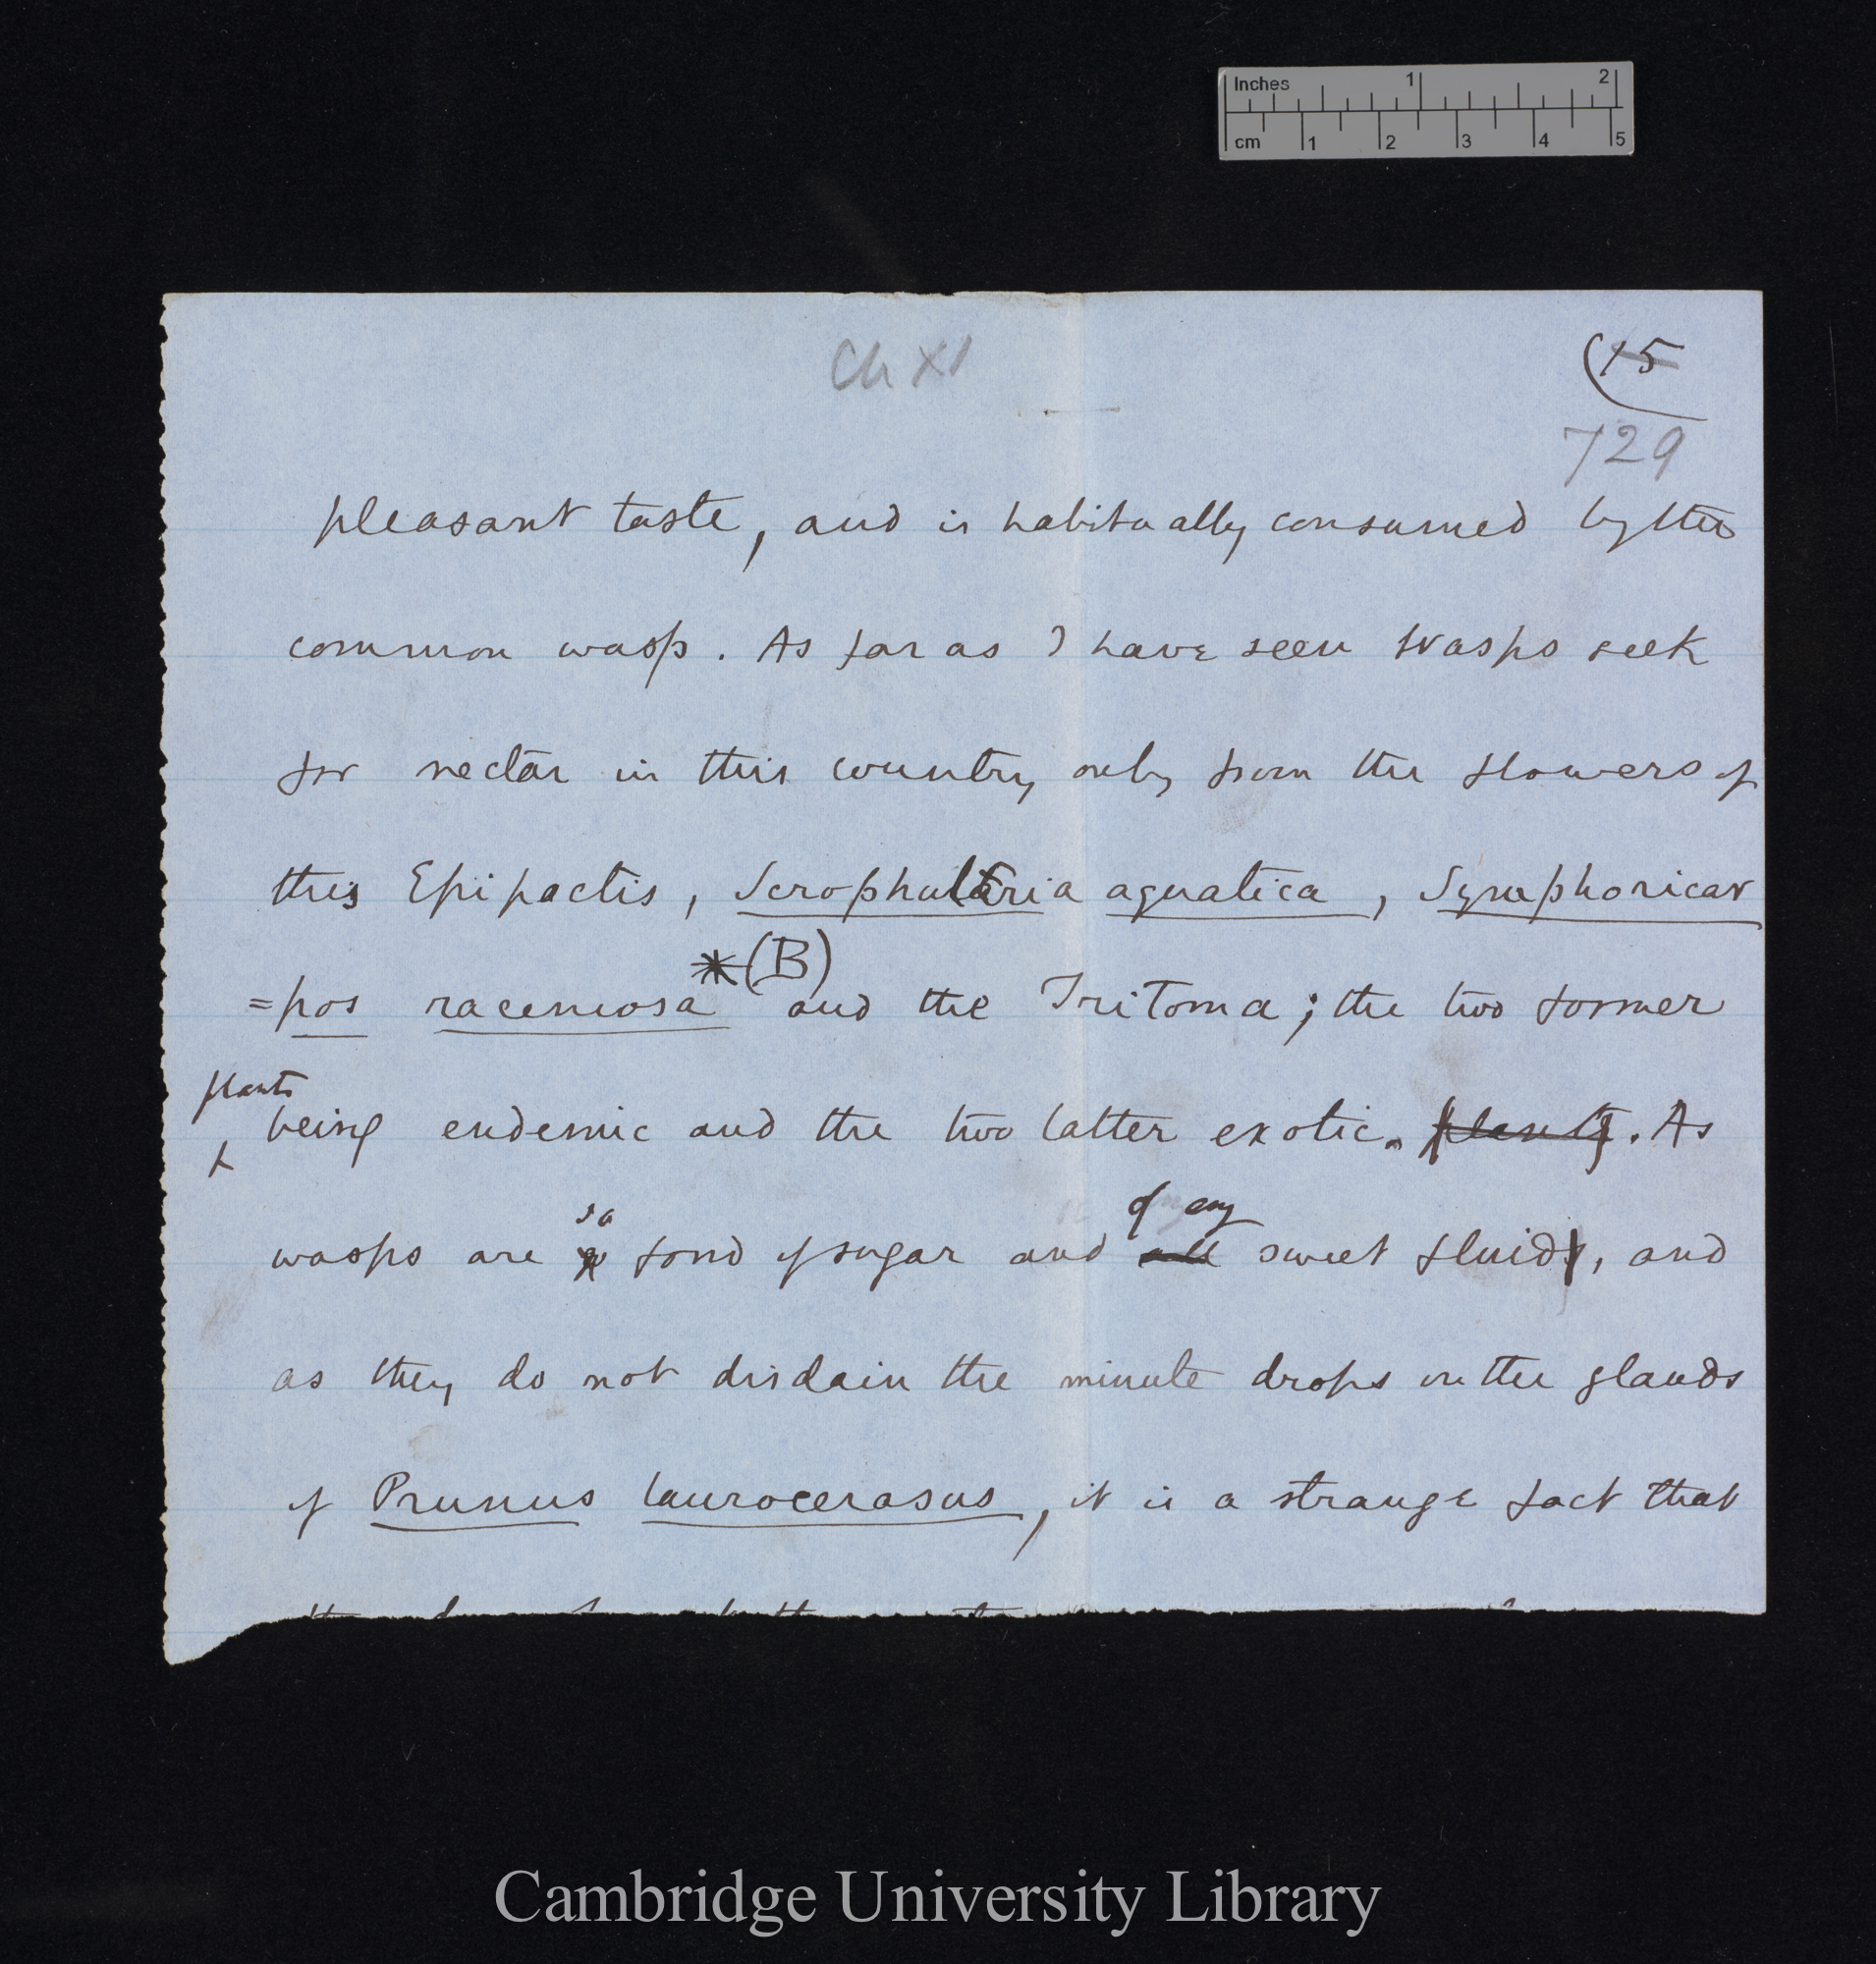 Inches 1 2
cm 1 2 3 4 5
Ch XI
(15
729
pleasant taste, and is habitually consumed by the
common wasp. As far as I have seen Wasps seek
for nectar in this country only from the flowers of
this Epipactis, Scrophularia aquatica, Symphoricar
=pos racemosa *(B) and the Tritoma; the two former
plants
being endemic and the two latter exotic. plants. As
so of any
wasps are so fond of sugar and all sweet fluids, and
as they do not disdain the minute drops on the glands
of Prunus laurocerasus, it is a strange fact that
Cambridge University Library